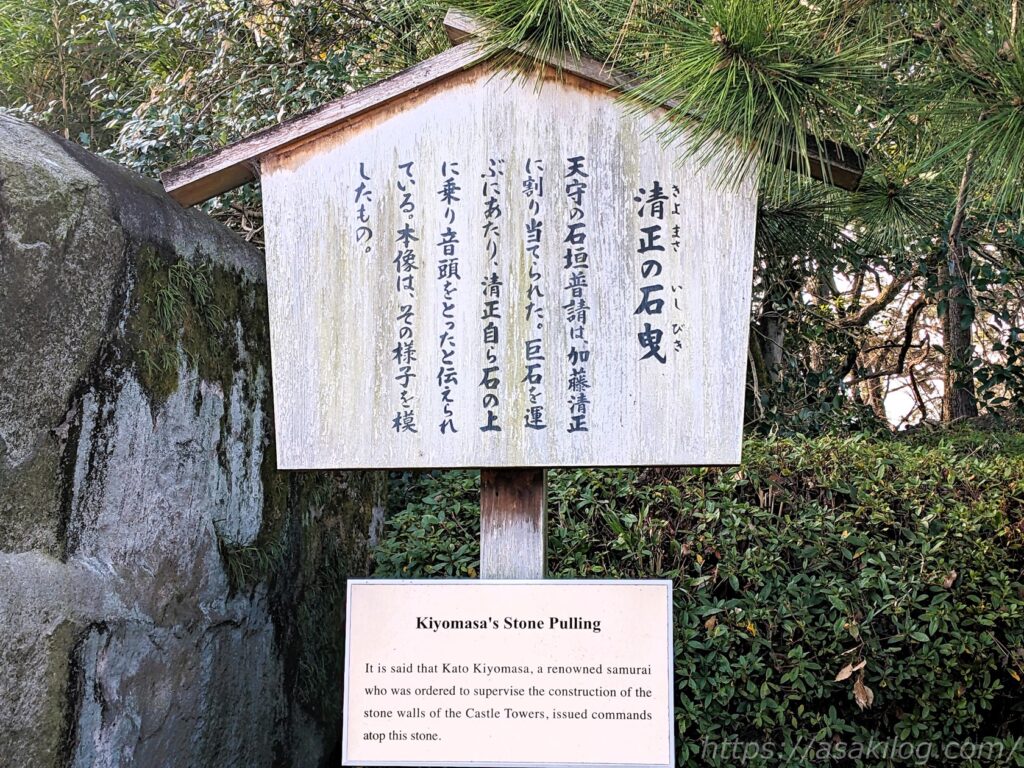 清正の石曳
きよまさ いしびき
天守の石垣普請は、加藤清正
に割り当てられた。巨石を運
ぶにあたり、清正自ら石の上
に乗り音頭をとったと伝えられ
ている。本像は、その様子を模
したもの。
Kiyomasa's Stone Pulling
It is said that Kato Kiyomasa, a renowned samurai
who was ordered to supervise the construction of the
stone walls of the Castle Towers, issued commands
atop this stone.
https://asakilog.com/